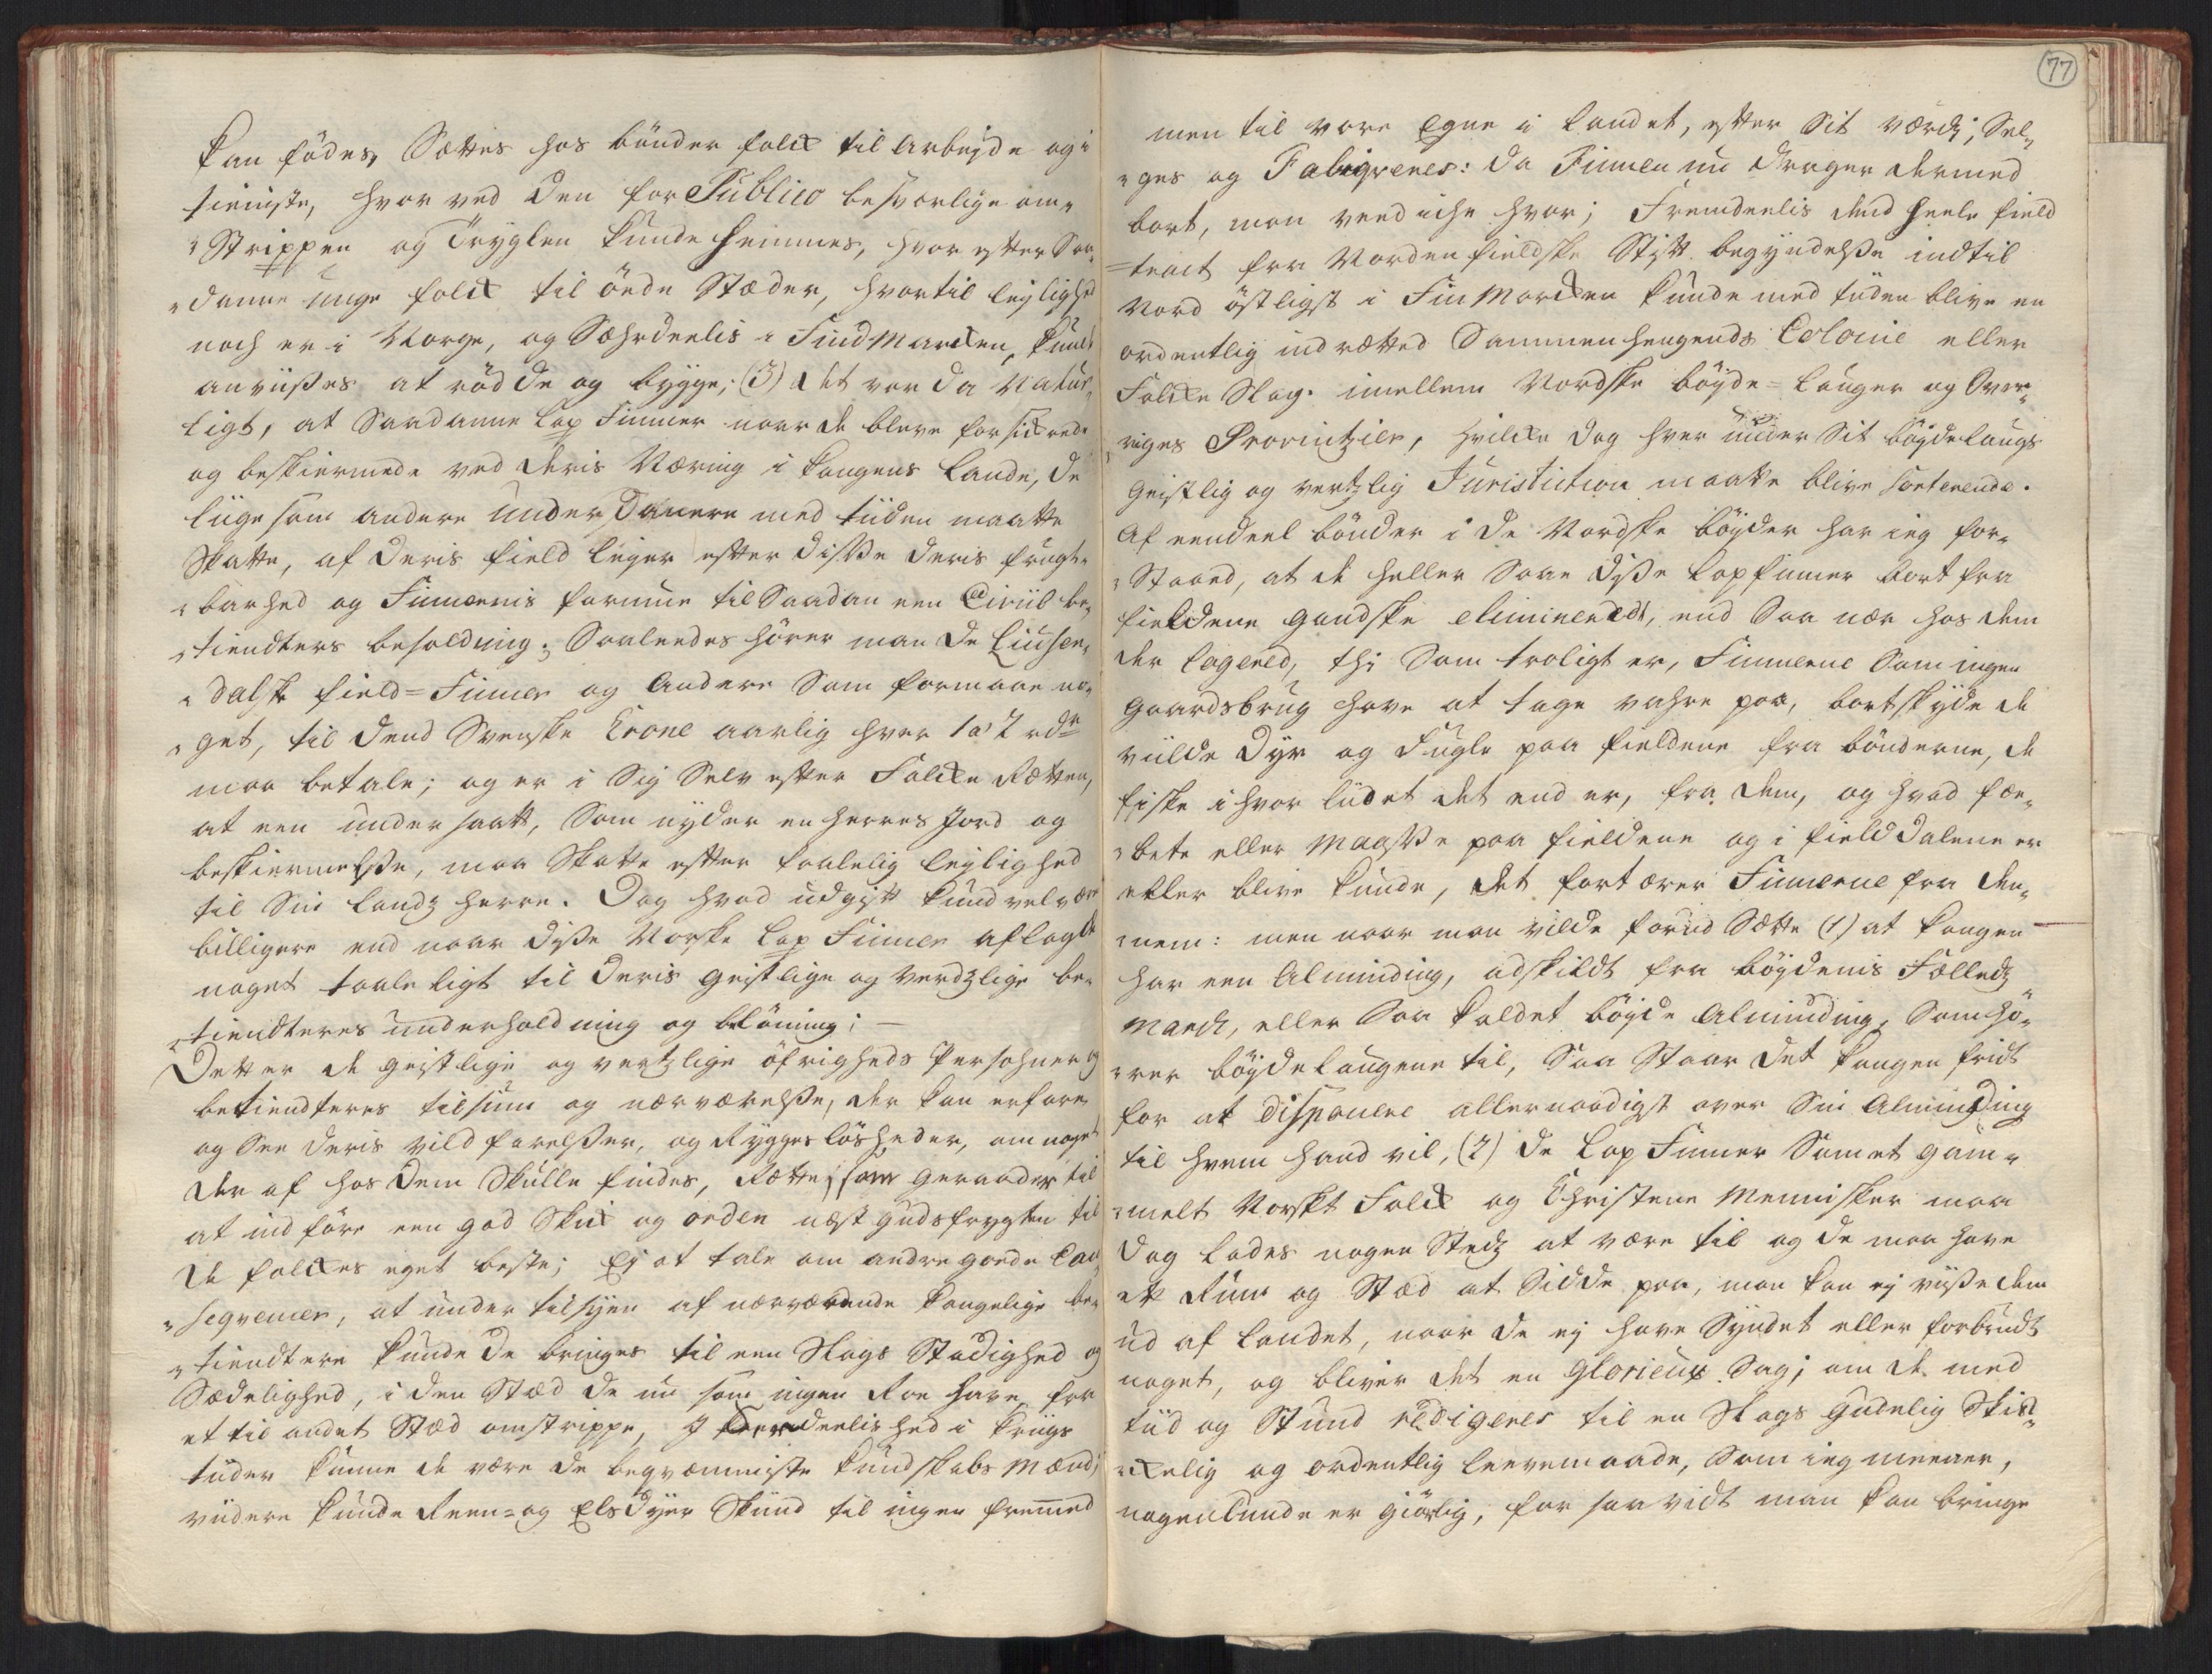 kan födes, Sættes hos bönder folck til Arbejde og i
tieniste, hvor ved den for Publico besværlige om-
-Strippen og Tryglen kunde hemmes, hvor efter Saa-
-danne unge folck til öede Stæder, hvortil lejlighed
noch er i Norge, og Sæhrdeelis i Findmarcken, kunde
anviises at rödde og bygge; (3) det var da Natur-
ligt, at Saadanne Lap Finner naar de bleve forsickrede
og beskiermede ved deris Næring i kongens Lande, de
liige som andere Underdanere med tiiden maatte
Skatte, af deris field leyer efter disse deris frugt-
-barhed og Finnernis formue til Saadan een Civiil be-
-tiendters besoldning; Saaleedes hörer man de Liusne-
-dalske field=Finner og Andere Som formaae no-
-get, til dend Svenske Crone aarlig hver 1 a 2 rdr
maa betale; og er i Sig Selv efter Folcke Rætten,
at een undersaatt, Som nyder en herres Jord og
beskiermelsse, maa Skatte efter taalelig lejlighed
til Sin Landz herre. Dog hvad udgift kund vel være
billigere end naar disse Norske Lap Finner aflagde
noget taaleligt til deris geistlige og verdzlige be-
-tiendteres underholdning og belöning; —
Dett er de geistlige og vertzlige öfrigheds Persohner og
betiendteres tilsiun og nærværelsse, der kan erfare
og See deris vildfarelsser, og Ryggeslösheder, om noget
der af hos dem Skulle findes, Rette, som geraader til
at indföre een god Skick og orden næst gudsfrygten til
de folckes eget beste; Ej at tale om andre goede Con-
-seqvencer, at under tilsyen af nærværende kongelige be-
-tiendtere kunde de bringes til een Slags Stadighed og
Sædelighed, i den Stæd de nu som ingen Roe have, for
et til andet Stæd omstrippe, I Særdeelished i Kriigs
tiider kunne de være de beqvemmiste kundskabs Mænd;
viidere kunde Reens- og Elsdyrs Skind til ingen fremmed
77
men til vore Egne i Landet, efter Sit værdj, Sel-
-ges og Fabiqveres: da Finnen nu drager dermed
bort, man veed iche hvor; Fremdeelis dend heele field
=tract fra Nordenfieldske Stift begyndelsse indtil
Nord östligst i Finmarcken kunde med tiiden blive en
ordentlig indrætted Sammenhengende Colonie eller
Folcke Slag imellem Nordske böyde=Lauger og Sver-
-riges Provintzier, hvilcke dog hver under Sit böydelaugs
geistlig og vertzlig Jurisdiction maatte blive sorterende.
Af eendeel bönder i de Nordske böyder har ieg for-
-Staaed, at de heller Saae disse Lapfinner bort fra
fieldene gandske elimineredt, end Saa nær hos dem
der logered, thi Som troligt er, Finnerne Som ingen
gaardsbrug have at tage vahre paa, bortskyde de
viilde Dyr og Fugle paa fieldene fra bönderne, de
fiske i hvor liidet det end er, fra dem, og hvad fæe-
-bete eller Maasse paa fieldene og i field dalene er
eller blive kunde, det fortærer Finnerne fra den-
-nem: men naar man vilde forud Sætte (1) at kongen
har een Alminding, adskildt fra böydenis Fælledz
March, eller Saa kaldet böyde Alminding, Som hö-
-rer böydelaugene til, Saa Staar det kongen fridt
for at disponere allernaadigst over Sin Alminding
til hvem hand vil, (2) de Lap Finner Som et gam-
-melt Norskt Folck og Christene Mennisker maa
dog lades nogen Stedz at være til og de maa have
et Rum og Stæd at Sidde paa, man kan ej viise dem
ud af Landet, naar de ej have Syndet eller forbrudt
noget, og bliver det en glorieux Sag; om de med
tiid og Stund redigeres til en Slags gudelig Skic-
-kelig og ordentlig leevemaade, Som ieg meener,
nogenlunde er giörlig, for saa vidt man kan bringe